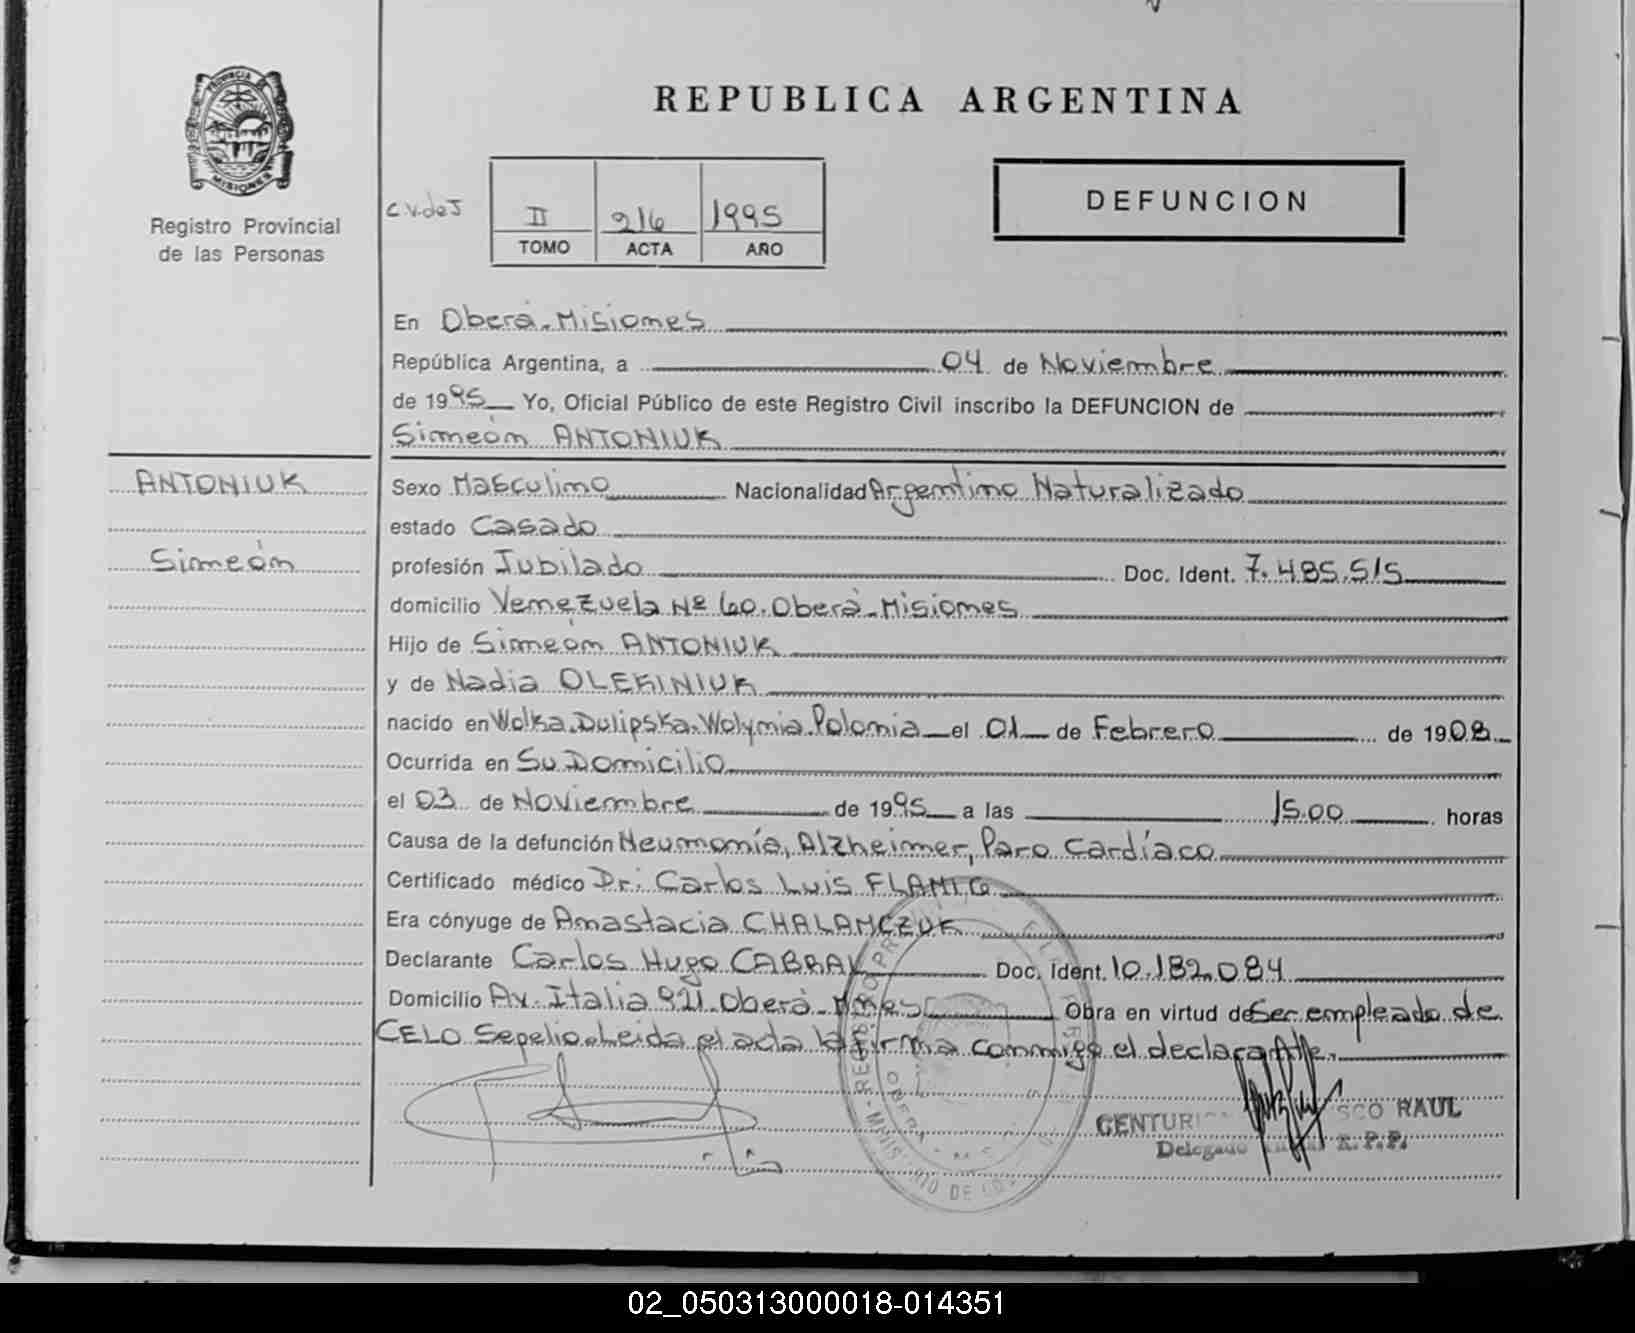 REPUBLICA ARGENTINA
PROVINCIA DE
MISIONES
Registro Provincial
de las Personas
C.V.deJ
II 216 1995
TOMO ACTA AÑO
DEFUNCION
En Oberá-Misiones
República Argentina, a 04 de Noviembre
de 1995 Yo, Oficial Público de este Registro Civil inscribo la DEFUNCION de
Simeón ANTONIUK
ANTONIUK
Simeón
Sexo Masculino Nacionalidad Argentino Naturalizado
estado Casado
profesión Jubilado Doc. Ident. 7.485.515
domicilio Venezuela Nº 60.Oberá-Misiones
Hijo de Simeón ANTONIUK
y de Nadia OLEKINIUK
nacido en Wolka.Dulipska.Wolynia.Polonia el 01 de Febrero de 1908
Ocurrida en Su Domicilio
el 03 de Noviembre de 1995 a las 15.00 horas
Causa de la defunción Neumonía, Alzheimer, Paro Cardíaco
Certificado médico Dr: Carlos Luis
Era cónyuge de Anastacia CHALAMCZUK
Declarante Carlos Hugo CABRAL Doc. Ident. 10.182.084
Domicilio Av. Italia 921.Oberá-Mnes Obra en virtud de Ser empleado de
CELO Sepelio.Leida el acta la firma conmigo el declarante.
RAUL
Delegado R.P.P.
MINISTERIO DE
OBERA
02_050313000018-014351